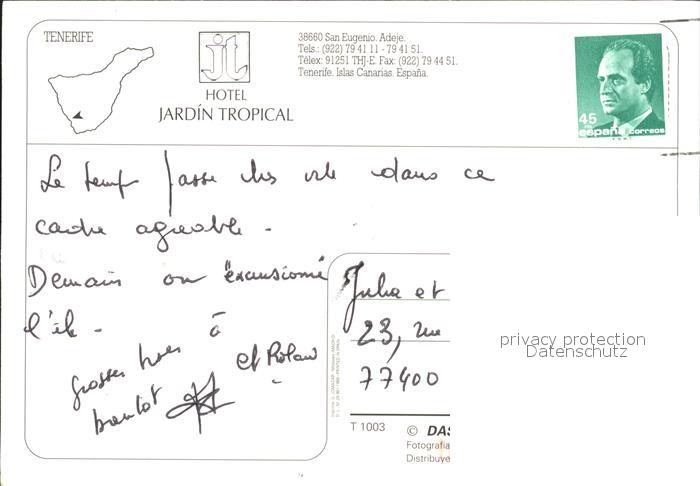 TENERIFE
jt
HOTEL
JARDÍN TROPICAL
38660 San Eugenio. Adeje.
Tels.: (922) 79 41 11 - 79 41 51.
Télex: 91251 THJ-E. Fax: (922) 79 44 51.
Tenerife. Islas Canarias. España.
45
españa correos
Le temps passe très vite dans ce
cadre agréable.
Demain on "excursionne"
l'île.
Grosses bises à
bientôt
et Roland
Julia et
23, rue
77400
privacy protection
Datenschutz
T 1003
© DAS
Fotografía
Distribuye